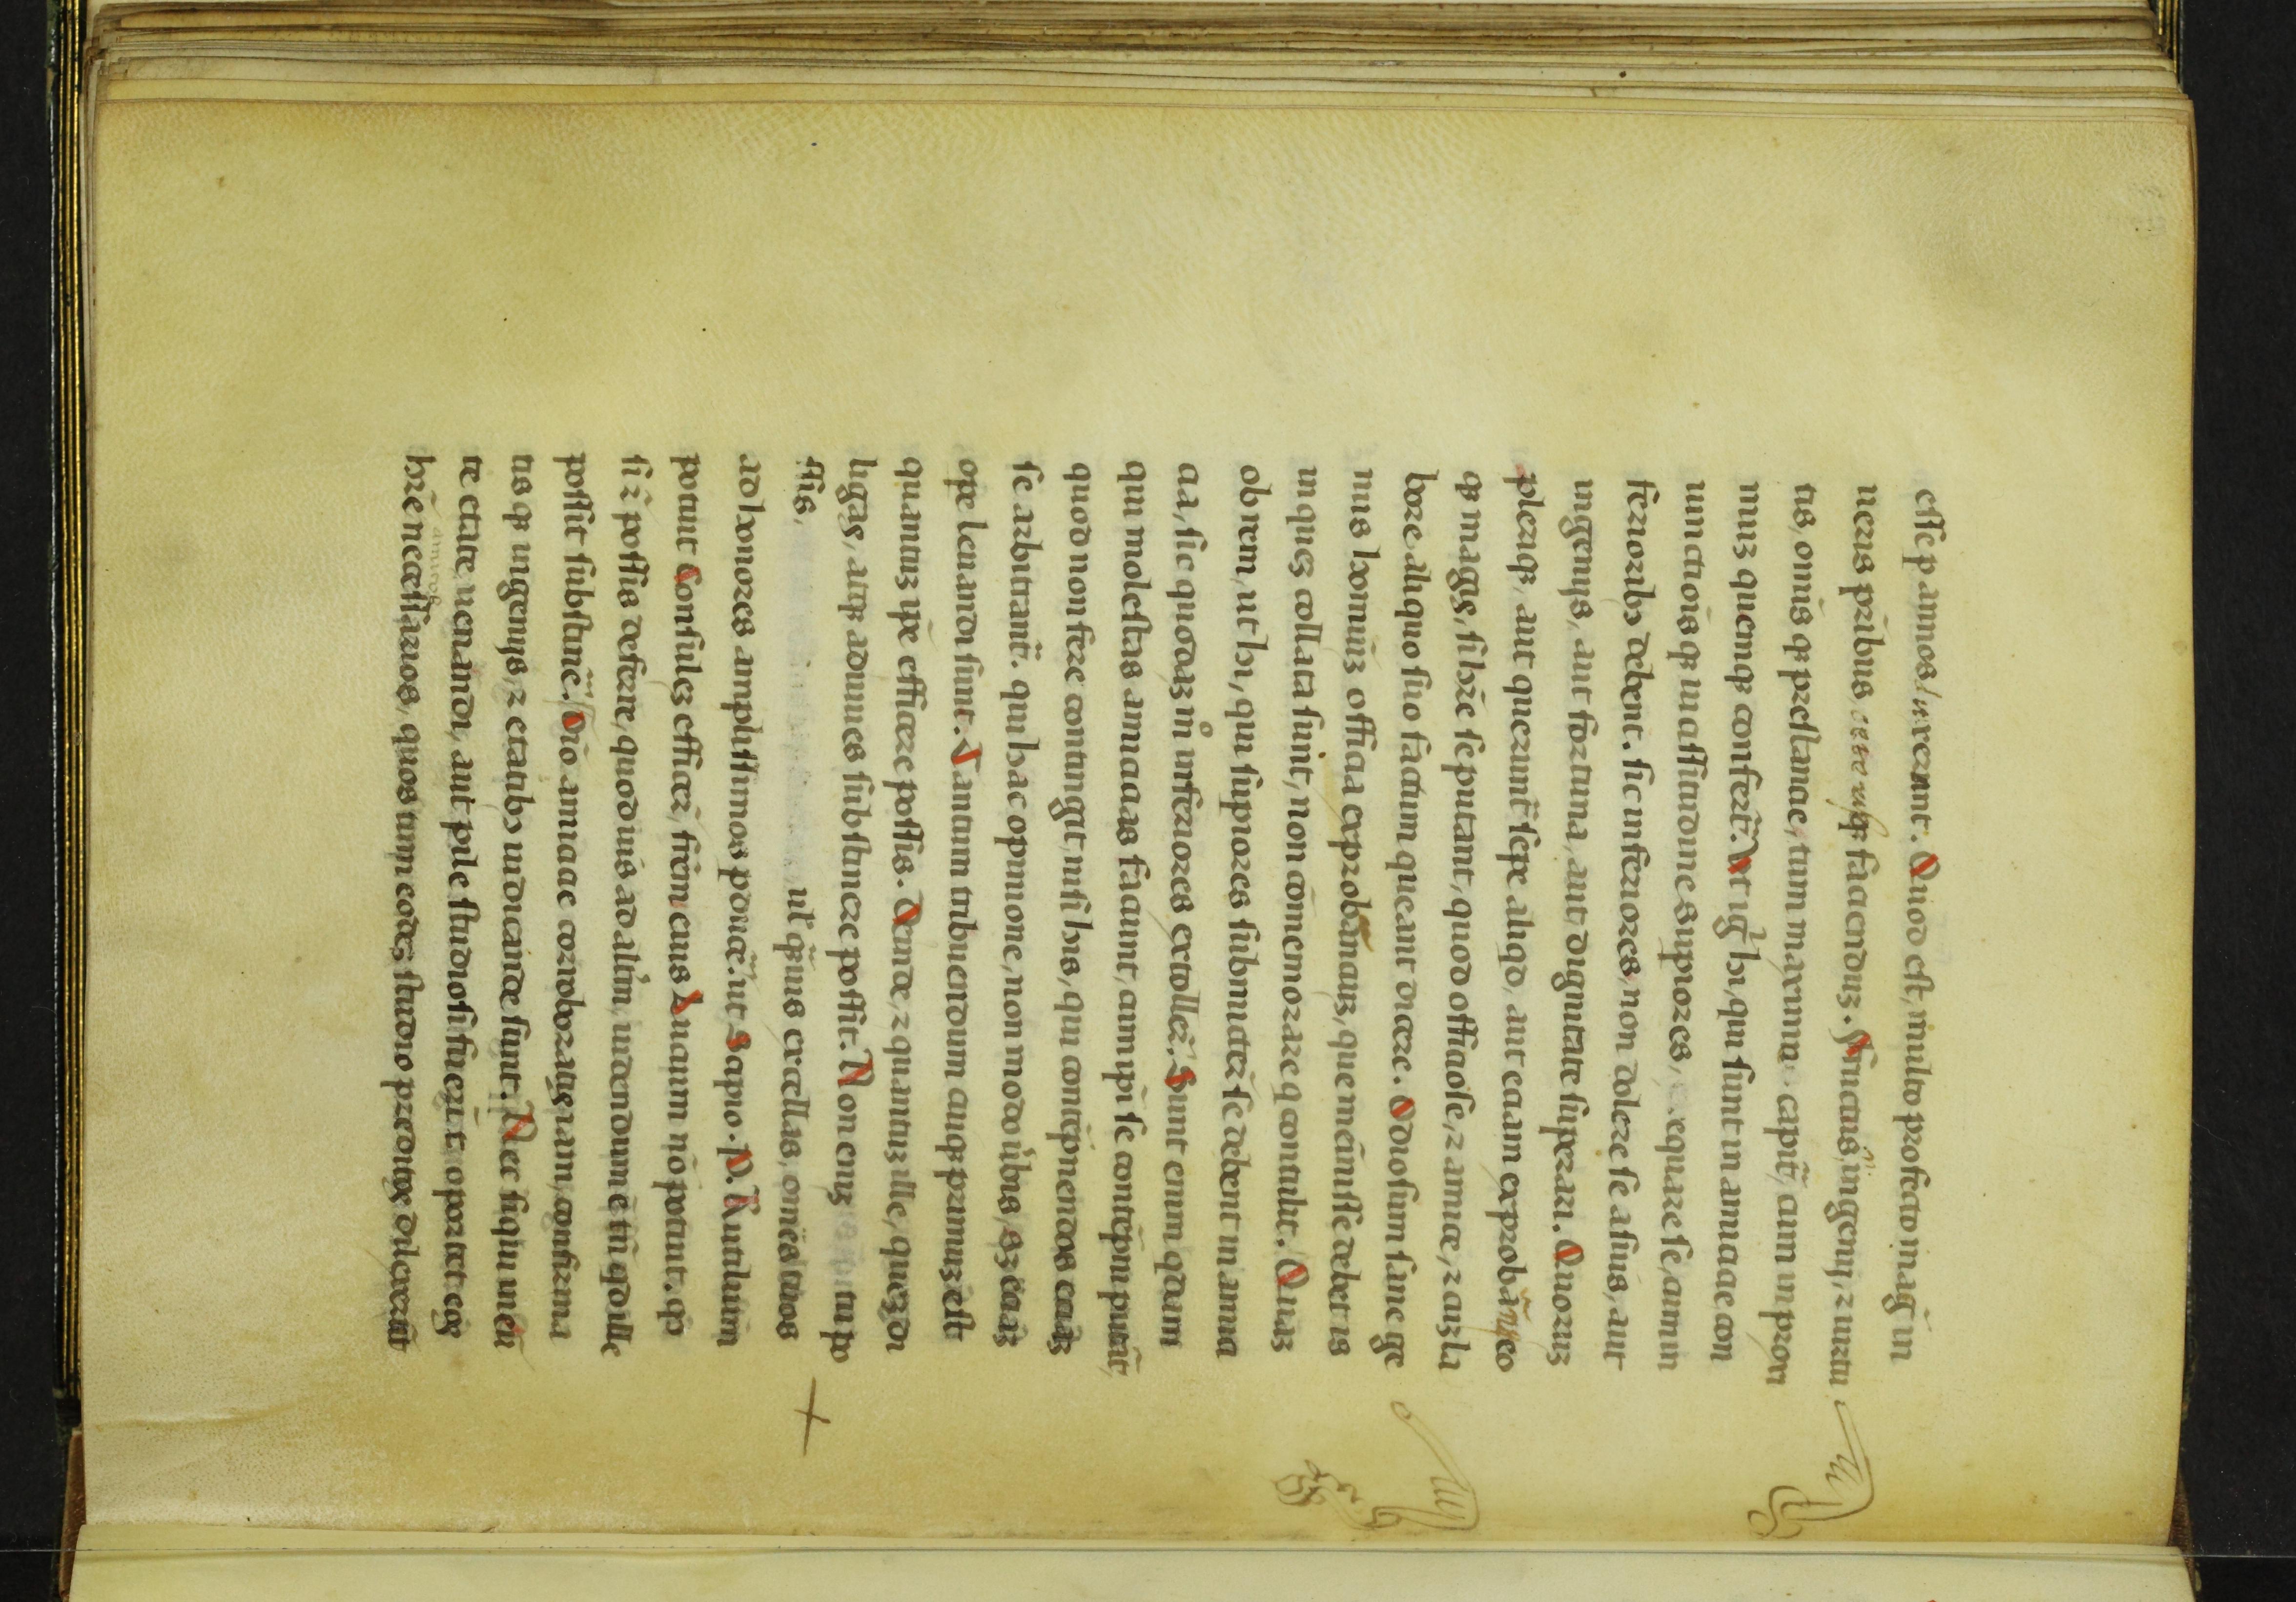 esse p̄ annos luxerunt. Quod est, multo profecto mag̅ in
neris pribus facienduz. Fructus, ingenij, ⁊ uirtu
tis, omnis qꝫ prestancie, tum maximus capit̃, cum in proxi
muz quemqꝫ confert̃. Vt ig̃ hi, qui sunt in amicicie con
iunctiois qꝫ necessitudine Supiores, exequare se, cum in
ferioribꝫ debent. sic inferiores, non dolere se a suis, aut
ingenijs, aut fortuna, aut dignitate superari. Quoruz
pleriqꝫ, aut querunt̃ sepe aliqd, aut eciam exprobāt, eo
qꝫ magis, si hr̄e se putant, quod officiose, ⁊ amice, ⁊ cuꝫ la
bore aliquo suo factum queant dicere. Odiosum sane ge
nus hominuz officia exprobanciuz, que meminisse debet is
in quez collata sunt, non cōmemorare q contulit. Quaz
ob rem, ut hi, qui supiores submicter se debent in amici
cia, sic quodaz mō inferiores extoller̃. Sunt enim qdam
qui molestas amicicias faciunt, cum ip̄i se contēpni putāt,
quod non fere contingit, nisi his, qui contēpnendos eciaz
se arbitrant̃. qui hac opinione, non modo ūbis, sꝫ eciaz
ope leuandi sunt. Tantum tribuendum cuiqꝫ primuz est
quantuz ipe efficere possis. Deinde, ⁊ quantuz ille, quez di
ligas, atqꝫ adiuues substinere possit. Non eniz tu po
ssis, ul̕ q̄uis excellas, omnes tuos
ad honores amplissimos pducē. ut Sapio. P. Rutilium
potuit Consulez efficer̃, frēm eius Lucium nō potuit. qd
si ⁊ possis deferre, quod uis ad altm, uidendum ē tn̄ qd ille
possit substiner̃. Oīo amicicie corroboratis iam, confirma
tis qꝫ ingenijs, ⁊ etatibꝫ iudicande sunt. Nec siqui ineū
te etate uenandi, aut pile studiosi fuerūt oportet eos
amicos
hr̄e necessarios, quos tum eodeꝫ studio preditos dilexerūt